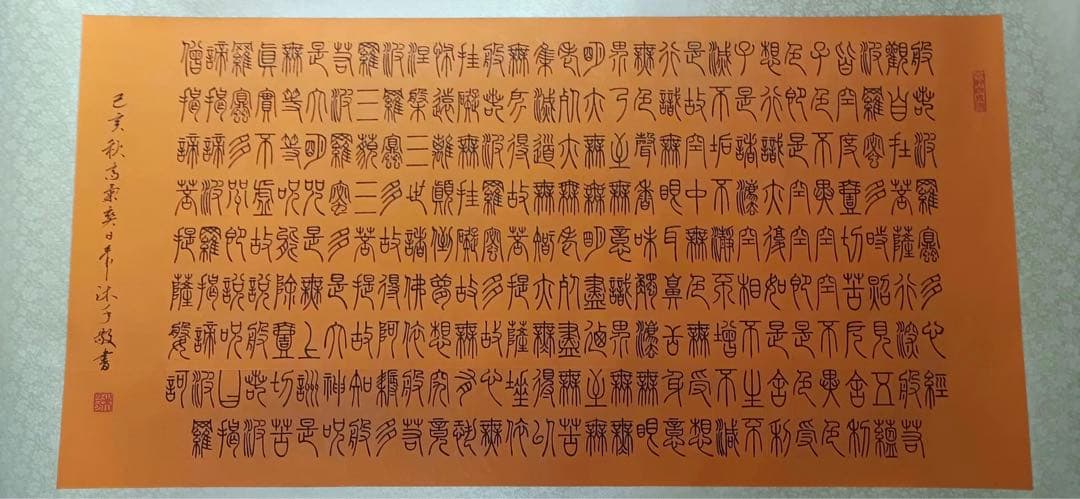 般若波羅蜜多心經
觀自在菩薩行深般若
波羅蜜多時照見五蘊
皆空度壹切苦厄舍利
子色不異空空不異色
色即是空空即是色受
想行識亦復如是舍利
子是諸法空相不生不
滅不垢不淨不增不減
是故空中無色無受想
行識無眼耳鼻舌身意
無色聲香味觸法無眼
界乃至無意識界無無
明亦無無明盡迺至無
老死亦無老死盡無苦
集滅道無智亦無得以
無所得故菩提薩埵依
般若波羅蜜多故心無
罣礙無罣礙故無有恐
怖遠離顛倒夢想究竟
涅槃三世諸佛依般若
波羅蜜多故得阿耨多
羅三藐三菩提故知般
若波羅蜜多是大神呪
是大明呪是無上呪是
無等等呪能除壹切苦
真實不虛故說般若波
羅蜜多呪即說呪曰揭
諦揭諦波羅揭諦波羅
僧揭諦菩提薩婆訶
己亥秋高氣爽日常沐手敬書